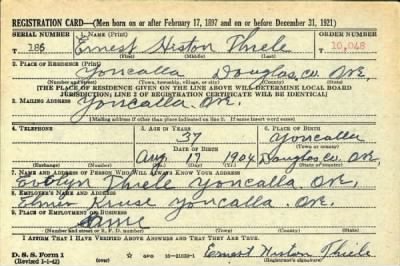 REGISTRATION CARD—(Men born on or after February 17, 1897 and on or before December 31, 1921)
SERIAL NUMBER 1. NAME (Print) ORDER NUMBER
186 Ernest Histon Thiele 10,048
(First) (Middle) (Last)
2. PLACE OF RESIDENCE (Print)
Yoncalla Douglas, co. Ore.
(Number and street) (Town, township, village, or city) (County) (State)
[THE PLACE OF RESIDENCE GIVEN ON THE LINE ABOVE WILL DETERMINE LOCAL BOARD
JURISDICTION; LINE 2 OF REGISTRATION CERTIFICATE WILL BE IDENTICAL]
3. MAILING ADDRESS
Yoncalla, Ore.
(Mailing address if other than place indicated on line 2. If same insert word same)
4. TELEPHONE 5. AGE IN YEARS 6. PLACE OF BIRTH
37 Yoncalla
DATE OF BIRTH (Town or county)
Aug 17 1904 Douglas, co. Ore.
(Exchange) (Number) (Mo.) (Day) (Yr.) (State or country)
7. NAME AND ADDRESS OF PERSON WHO WILL ALWAYS KNOW YOUR ADDRESS
Evelyn Thiele Yoncalla. Ore.
8. EMPLOYER'S NAME AND ADDRESS
Elmer Kruse Yoncalla. Ore.
9. PLACE OF EMPLOYMENT OR BUSINESS
Same
(Number and street or R. F. D. number) (Town) (County) (State)
I AFFIRM THAT I HAVE VERIFIED ABOVE ANSWERS AND THAT THEY ARE TRUE.
D. S. S. Form 1 GPO 16—21630-1 Ernest Histon Thiele
(Revised 1-1-42) (Registrant's signature)